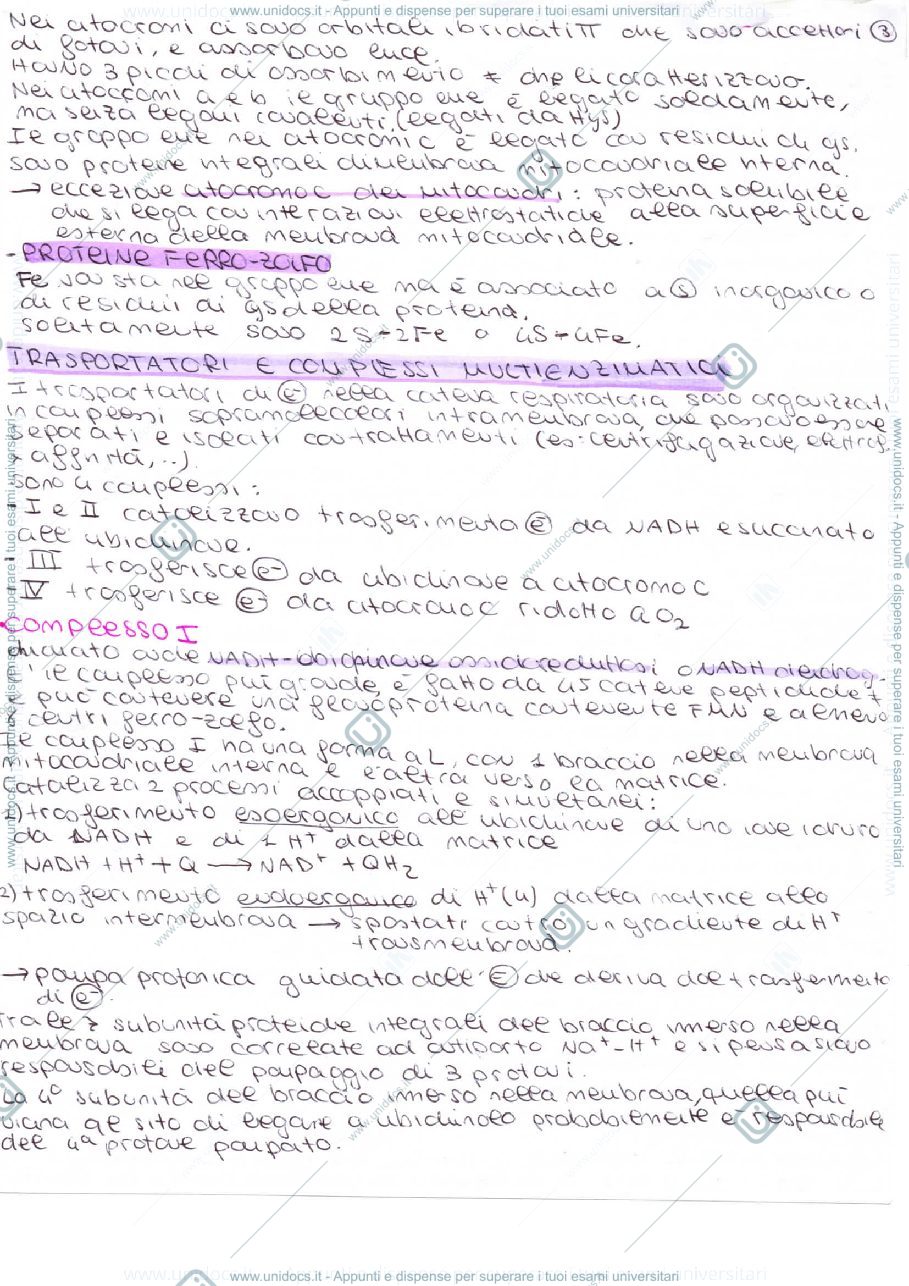 www.unidocs.it - Appunti e dispense per superare i tuoi esami universitari
Nei citocromi ci sono orbitali ibridati π che sono accettori ③
di fotoni, e assorbono luce.
Hanno 3 picchi di assorbimento ≠ che li caratterizzano.
Nei citocromi a e b il gruppo eme è legato saldamente,
ma senza legami covalenti. (legati da Hys)
Il gruppo eme nei citocromi c è legato con residui di cys.
sono proteine integrali di membrana mitocondriale interna.
→ eccezione citocromo c dei mitocondri: proteina solubile
che si lega con interazioni elettrostatiche alla superficie
esterna della membrana mitocondriale.
- PROTEINE FERRO-ZOLFO
Fe non sta nel gruppo eme ma è associato a S inorganico o
di residui di cys della proteina.
solitamente sono 2S-2Fe o 4S-4Fe.
TRASPORTATORI E COMPLESSI MULTIENZIMATICI
I trasportatori di e⁻ nella catena respiratoria sono organizzati
in complessi sopramolecolari intramembrana, che possono essere
separati e isolati con trattamenti (es: centrifugazione, elettrof.
x affinità,..)
sono 4 complessi:
• I e II catalizzano trasferimento e⁻ da NADH e succinato
all'ubichinone.
• III trasferisce e⁻ da ubichinone a citocromo c
IV trasferisce e⁻ da citocromo c ridotto a O₂
• COMPLESSO I
chiamato anche NADH-ubichinone ossidoreduttasi o NADH deidrog.
E' il complesso più grande, è fatto da 45 catene peptidiche ≠
e può contenere una flavoproteina contenente FMN e almeno
centri ferro-zolfo.
Il complesso I ha una forma a L, con 1 braccio nella membrana
mitocondriale interna e l'altra verso la matrice.
Catalizza 2 processi accoppiati e simultanei:
1) trasferimento esoergonico all'ubichinone di uno ione idruro
da NADH e di 1 H⁺ dalla matrice
NADH + H⁺ + Q → NAD⁺ + QH₂
2) trasferimento endoergonico di H⁺(4) dalla matrice allo
spazio intermembrana → spostati contro un gradiente di H⁺
transmembrana.
→ pompa protonica guidata dall'E che deriva dal trasferimento
di e⁻.
Tra le > subunità proteiche integrali del braccio immerso nella
membrana sono correlate ad antiporto Na⁺-H⁺ e si pensa siano
responsabili del pompaggio di 3 protoni.
La 4° subunità del braccio immerso nella membrana, quella più
vicina al sito di legame a ubichinolo probabilmente è responsabile
del 4° protone pompato.
www.unidocs.it - Appunti e dispense per superare i tuoi esami universitari